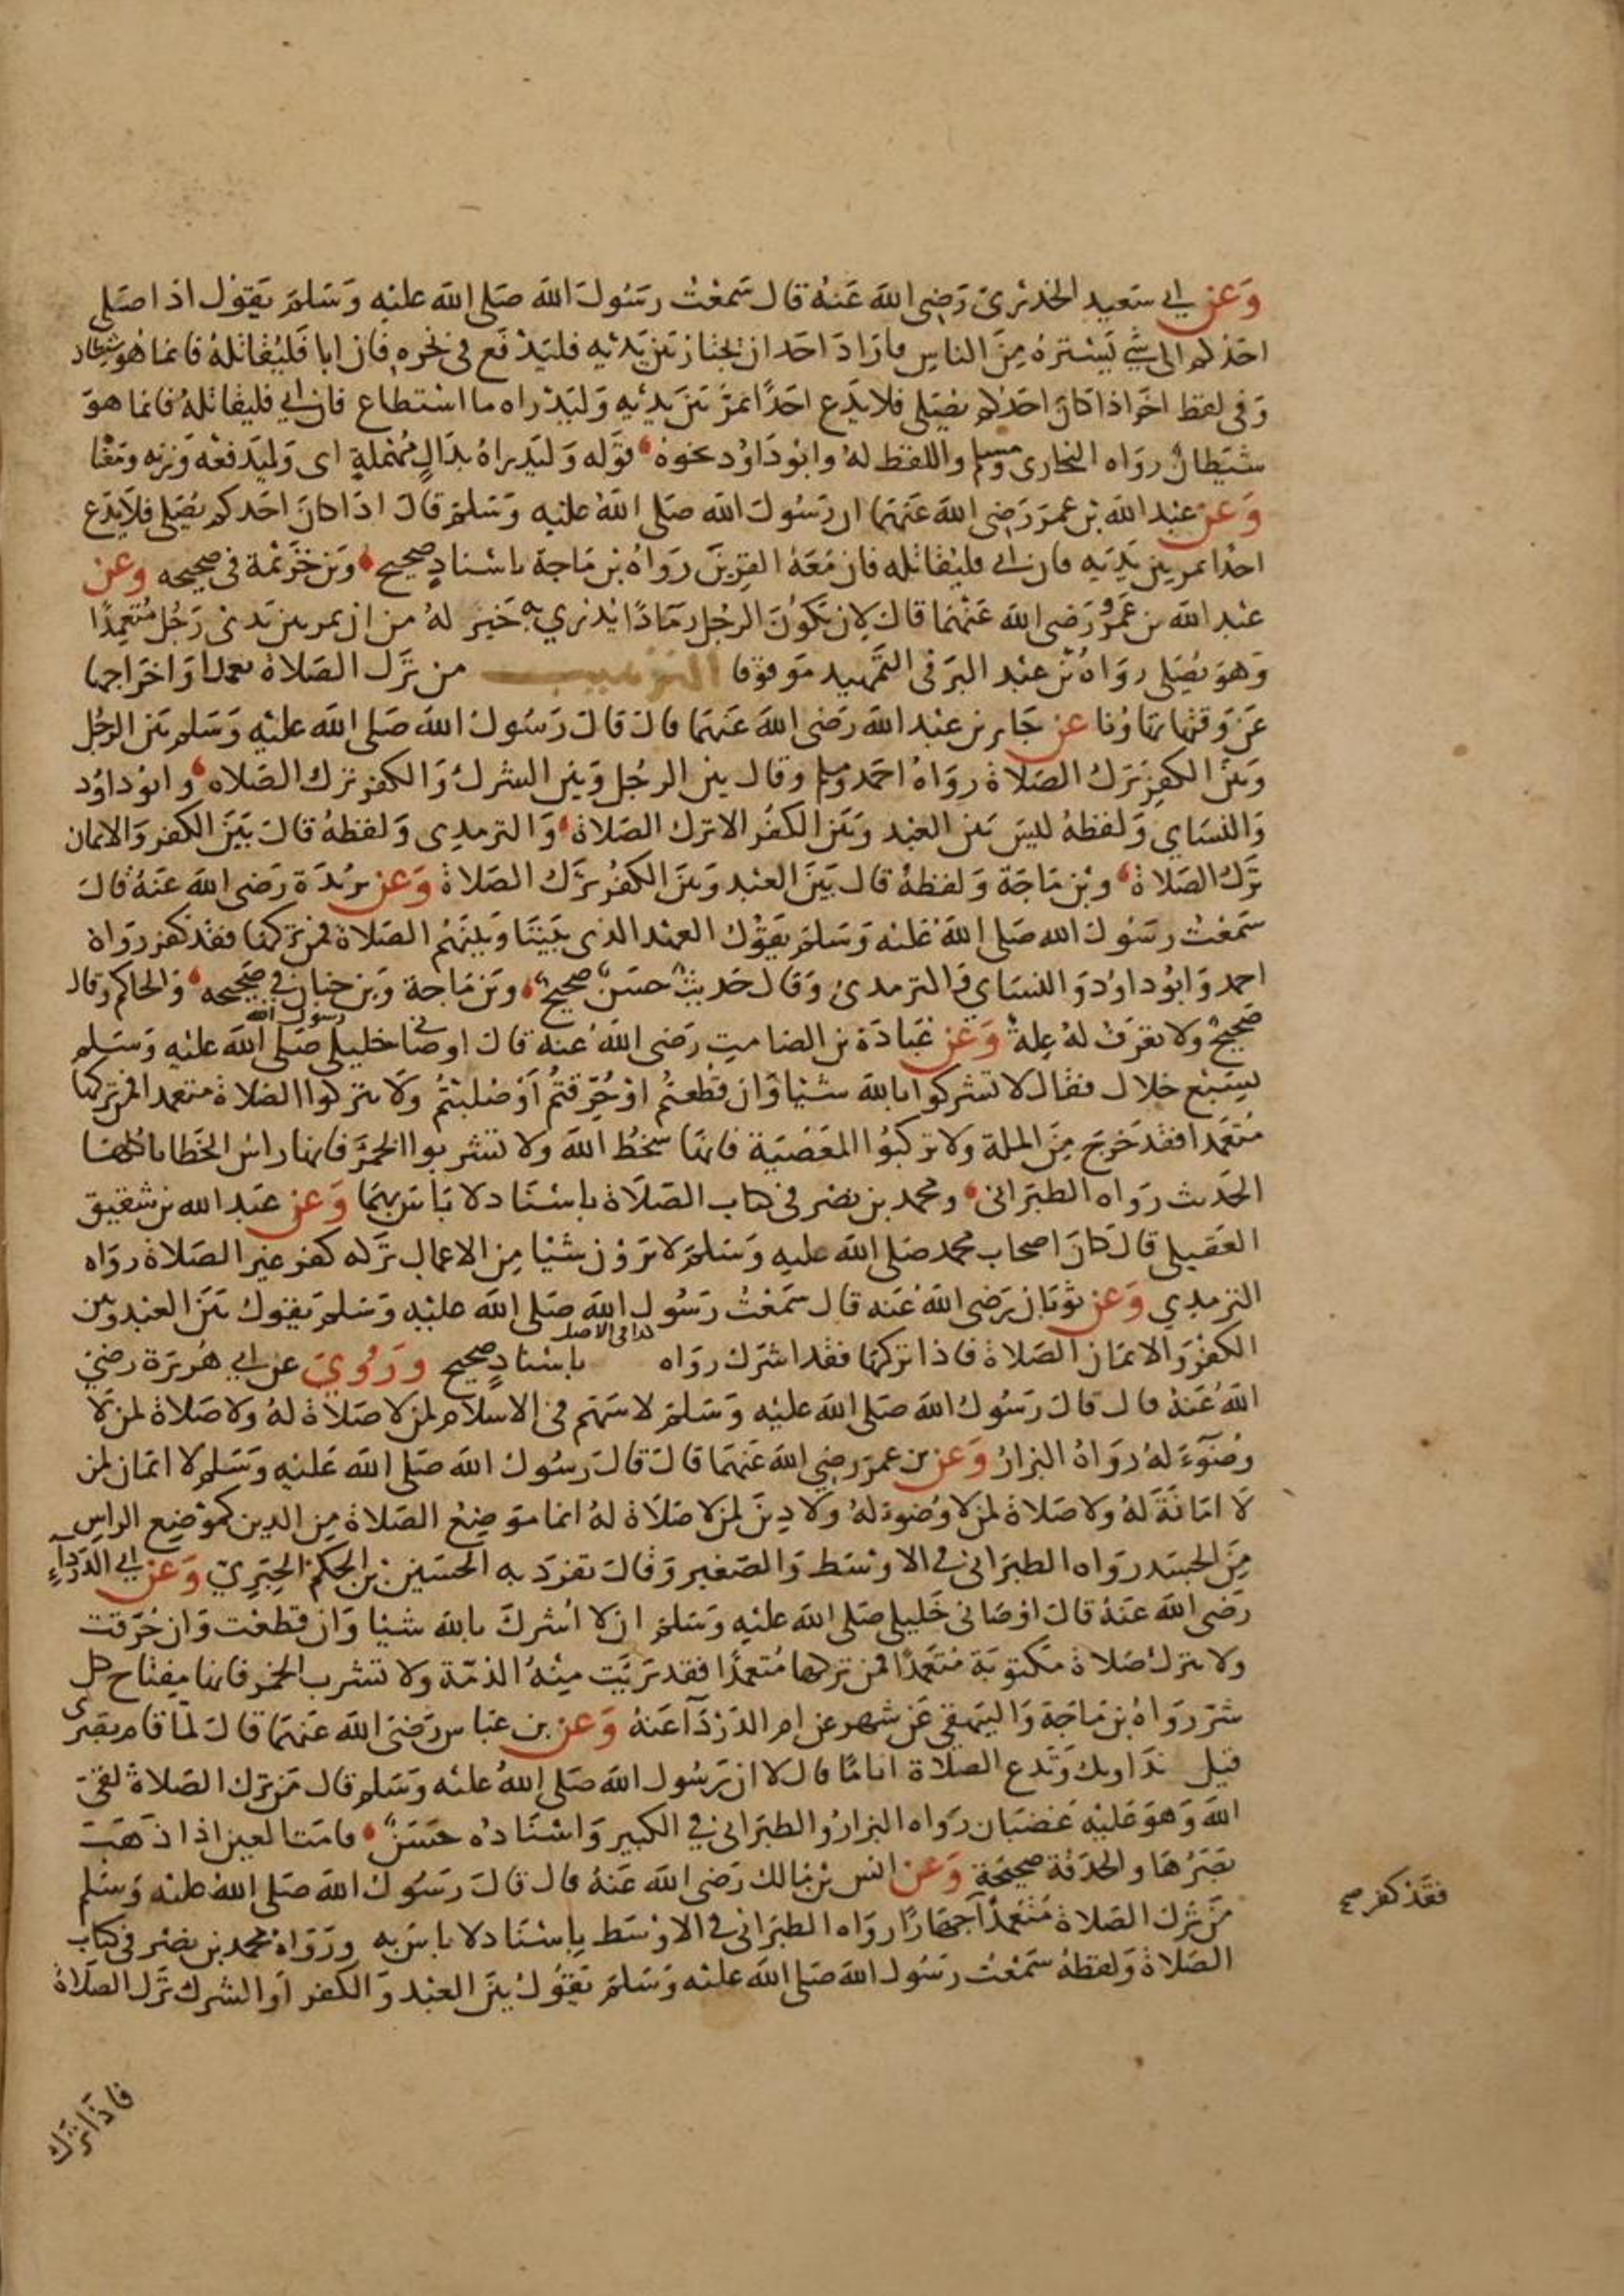 وعن ابي سعيد الخدري رضي الله عنه قال سمعت رسول الله صلى الله عليه وسلم يقول اذا صلى
احدكم الى شي يستره من الناس فاراد احد ان يجتاز بين يديه فليدفع في نحره فان ابا فليقاتله فانما هو شيطان
وفي لفظ اخر اذا كان احدكم يصلي فلا يدع احدًا يمر بين يديه وليدراه ما استطاع فان ابي فليقاتله فانما هو
شيطان رواه البخاري ومسلم واللفظ له وابو داود نحوه قوله وليدراه بدال مهملة اي وليدفعه وزنه ومعنا
وعن عبد الله بن عمر رضي الله عنهما ان رسول الله صلى الله عليه وسلم قال اذا كان احدكم يصلي فلا يدع
احدا يمر بين يديه فان ابي فليقاتله فان معه القرين رواه بن ماجة باسناد صحيح وبن خزيمة في صحيحه وعن
عبد الله بن عمرو رضي الله عنهما قال لان يكون الرجل رمادًا يذري به خير له من ان يمر بين يدي رجل متعمدًا
وهو يصلي رواه بن عبد البر في التمهيد موقوفا الترهيب من ترك الصلاة تعمدا واخراجها
عن وقتها تهاونا عن جابر بن عبد الله رضي الله عنهما قال قال رسول الله صلى الله عليه وسلم بين الرجل
وبين الكفر ترك الصلاة رواه احمد ومسلم وقال بين الرجل وبين الشرك والكفر ترك الصلاه وابو داود
والنساي ولفظه ليس بين العبد وبين الكفر الا ترك الصلاة والترمدي ولفظه قال بين الكفر والايمان
ترك الصلاة وبن ماجة ولفظه قال بين العبد وبين الكفر ترك الصلاة وعن بريدة رضي الله عنه قال
سمعت رسول الله صلى الله عليه وسلم يقول العهد الذي بيننا وبينهم الصلاة فمن تركها فقد كفر رواه
احمد وابو داود والنساي والترمدي وقال حديث حسن صحيح وبن ماجة وبن حبان في صحيحه والحاكم وقال
صحيح ولا نعرف له علة وعن عبادة بن الصامت رضي الله عنه قال اوصاني خليلي رسول الله صلى الله عليه وسلم
بسبع خلال فقال لا تشركوا بالله شيا وان قطعتم او حرقتم او صلبتم ولا تتركوا الصلاة متعمدا فمن تركها
متعمدا فقد خرج من الملة ولا تركبوا المعصية فانها سخط الله ولا تشربوا الخمر فانها راس الخطايا كلها
الحديث رواه الطبراني ومحمد بن نصر في كتاب الصلاة باسناد لا باس بهما وعن عبد الله بن شقيق
العقيلي قال كان اصحاب محمد صلى الله عليه وسلم لا يرون شيا من الاعمال تركه كفر غير الصلاة رواه
الترمدي وعن ثوبان رضي الله عنه قال سمعت رسول الله صلى الله عليه وسلم يقول بين العبد وبين
الكفر والايمان الصلاة فاذا تركها فقد اشرك رواه كدا في الاصل باسناد صحيح وروي عن ابي هريرة رضي
الله عنه قال قال رسول الله صلى الله عليه وسلم لا سهم في الاسلام لمن لا صلاة له ولا صلاة لمن لا
وضوء له رواه البزار وعن بن عمر رضي الله عنهما قال قال رسول الله صلى الله عليه وسلم لا ايمان لمن
لا امانة له ولا صلاة لمن لا وضوء له ولا دين لمن لا صلاة له انما موضع الصلاة من الدين كموضع الراس
من الجسد رواه الطبراني في الاوسط والصغير وقال تفرد به الحسين بن الحكم الحبري وعن ابي الدرداء
رضي الله عنه قال اوصاني خليلي صلى الله عليه وسلم ان لا اشرك بالله شيا وان قطعت وان حرقت
ولا نترك صلاة مكتوبة متعمدًا فمن تركها متعمدًا فقد بريت منه الذمة ولا تشرب الخمر فانها مفتاح كل
شر رواه بن ماجة والبيهقي عن شهر عن ام الدرداء عنه وعن بن عباس رضي الله عنهما قال لما قام بصرى
قيل نداويك وتدع الصلاة اياما قال لا ان رسول الله صلى الله عليه وسلم قال من ترك الصلاة لقي
الله وهو عليه غضبان رواه البزار والطبراني في الكبير واسناده حسن قامت العين اذا ذهب
بصرها والحدقة صحيحة وعن انس بن مالك رضي الله عنه قال قال رسول الله صلى الله عليه وسلم
من ترك الصلاة متعمدًا جهارًا رواه الطبراني في الاوسط باسناد لا باس به ورواه محمد بن نصر في كتاب
فقد كفر صح
الصلاة ولفظه سمعت رسول الله صلى الله عليه وسلم يقول بين العبد والكفر او الشرك ترك الصلاة
فاذا ترك